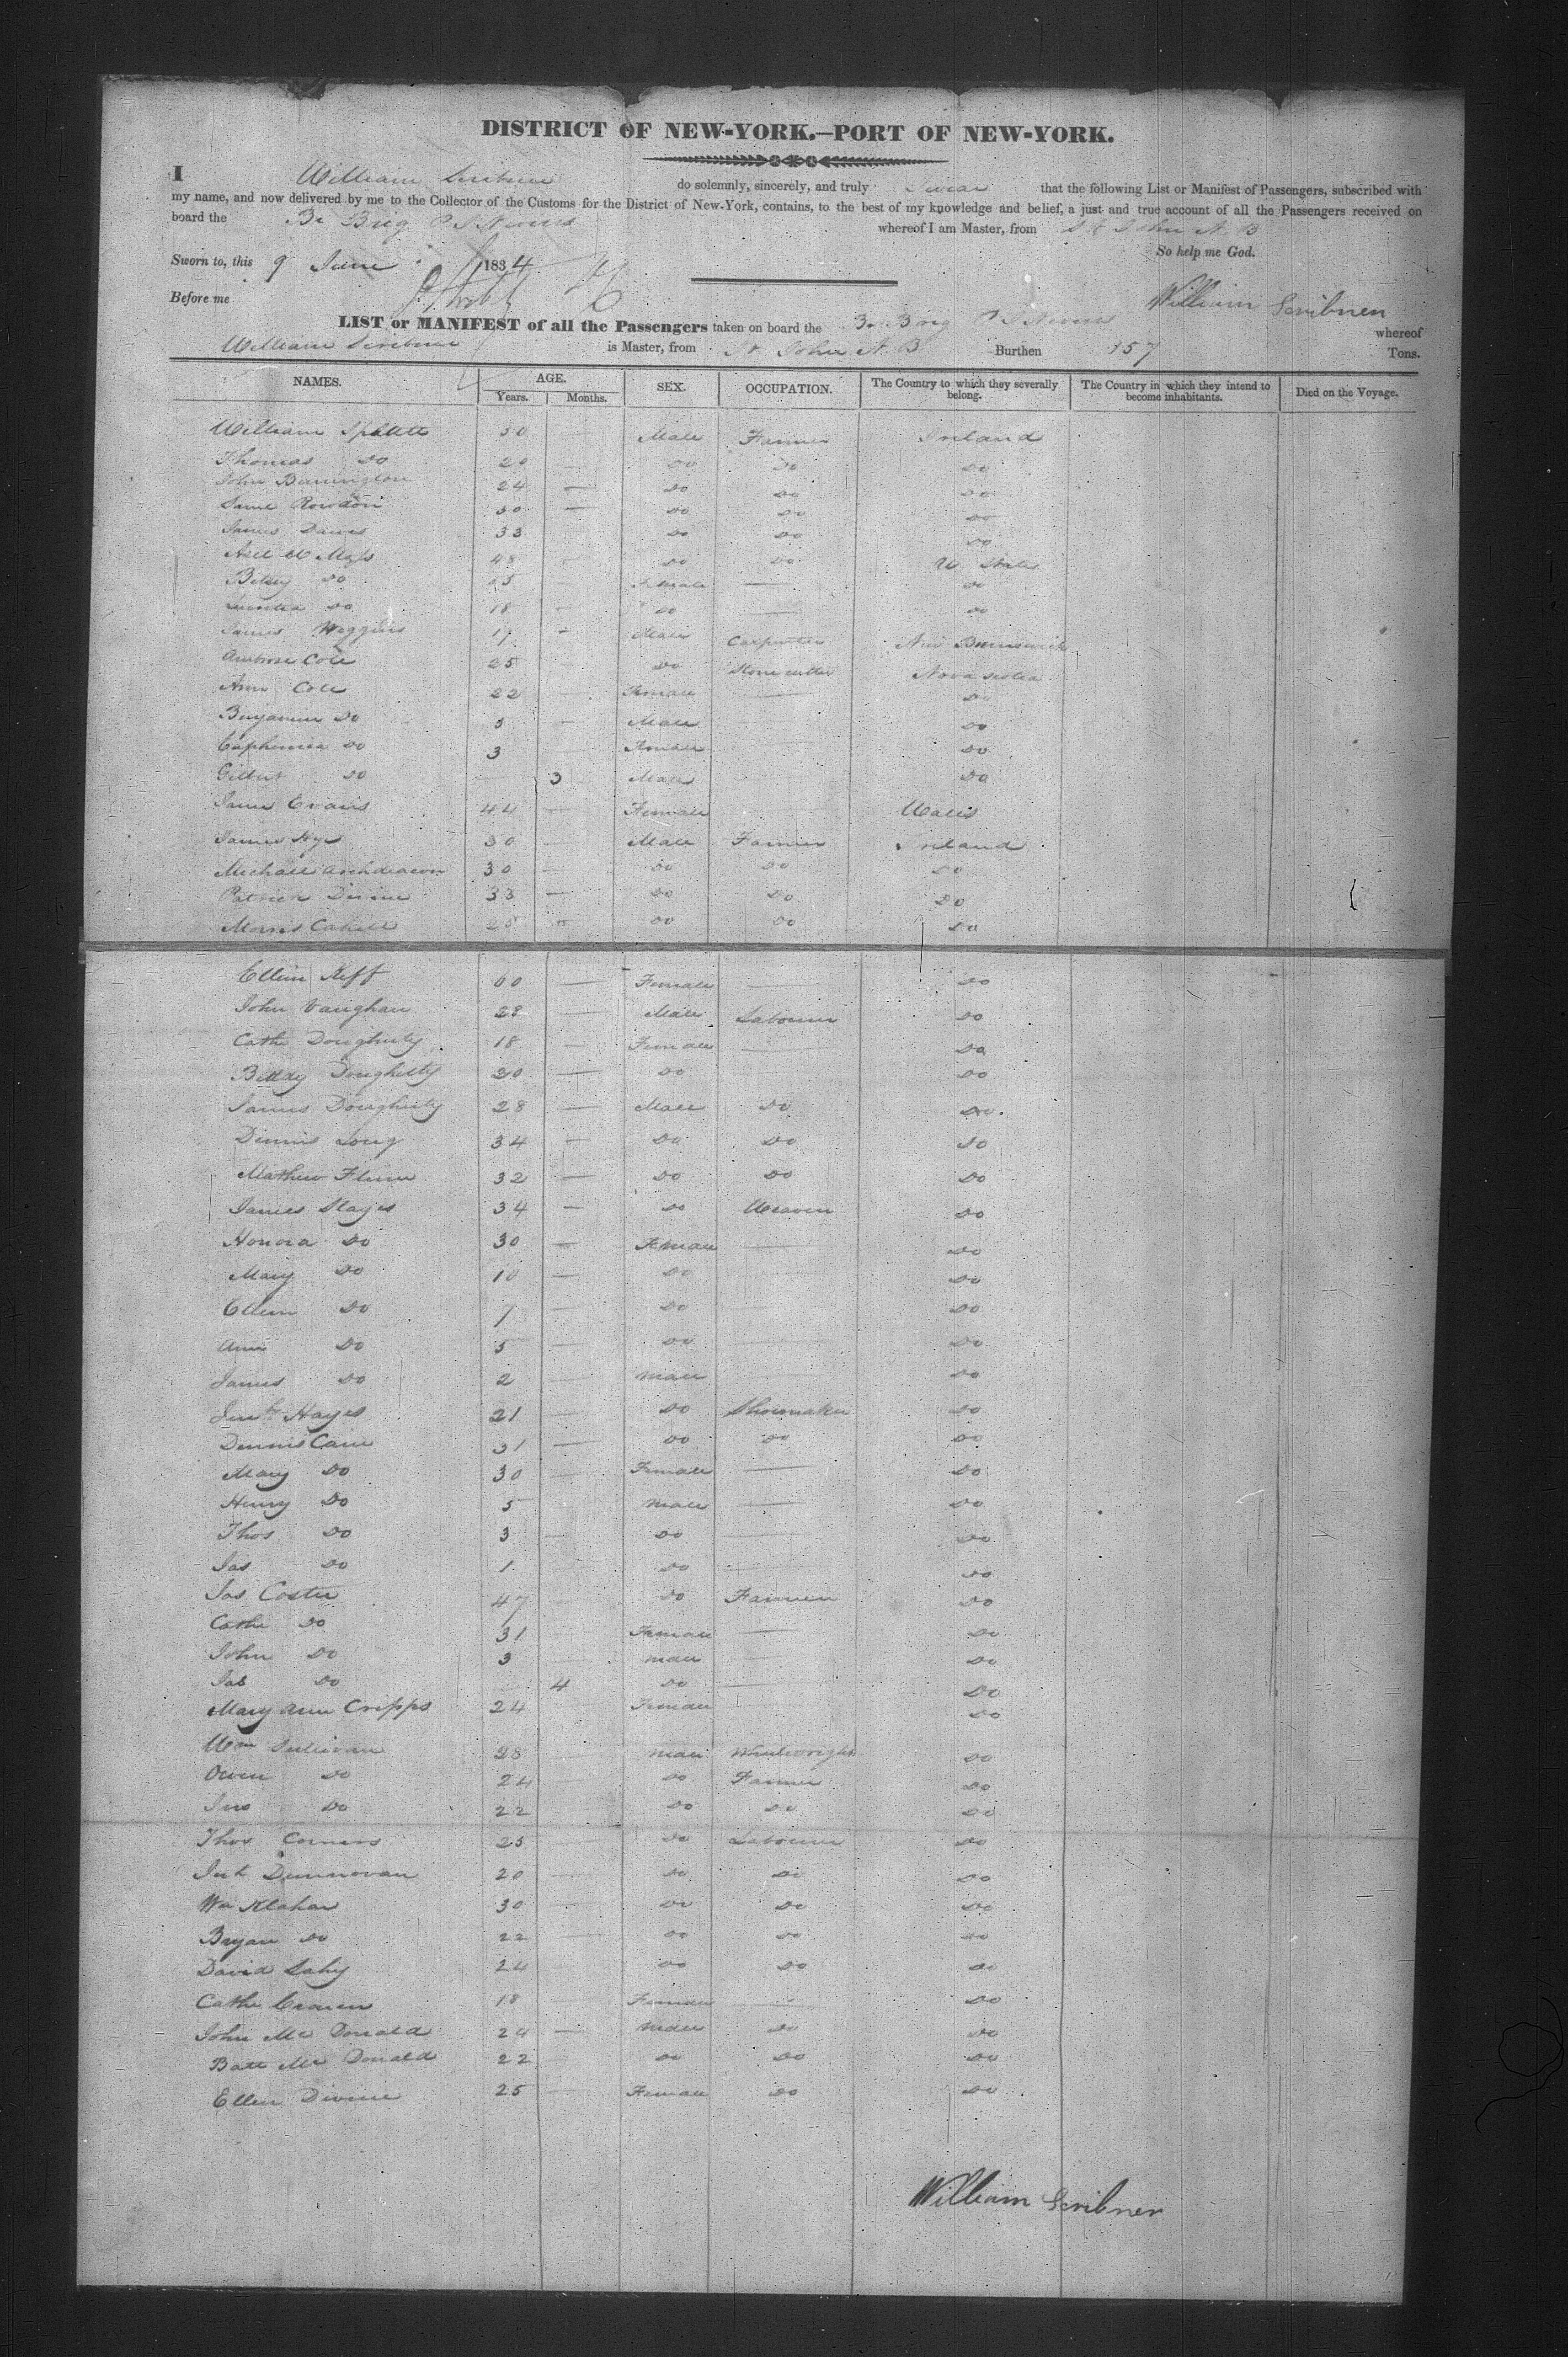 DISTRICT OF NEW-YORK.—PORT OF NEW-YORK.
I William Scribner do solemnly, sincerely, and truly Swear that the following List or Manifest of Passengers, subscribed with
my name, and now delivered by me to the Collector of the Customs for the District of New-York, contains, to the best of my knowledge and belief, a just and true account of all the Passengers received on
board the Br Brig whereof I am Master, from St John N. B
Sworn to, this 9 June 1834 So help me God.
Before me William Scribner
LIST or MANIFEST of all the Passengers taken on board the Br Brig whereof
William Scribner is Master, from St John N. B Burthen 157 Tons.
NAMES. AGE. SEX. OCCUPATION. The Country to which they severally belong. The Country in which they intend to become inhabitants. Died on the Voyage.
Years. Months.
William 30 Male Farmer Ireland
Thomas Do 20 — Do Do Do
John Bunnington 24 — Do Do Do
Rowdon 30 — Do Do Do
James Davis 33 Do Do Do
48 Do Do U. States
Betsey Do Female — Do
Do 18 — Do — Do
James Weggins Male Carpenter New Brunswick
Ambrose Cole 25 Do Stone cutter Nova Scotia
Ann Cole 22 — Female — Do
Benjamin Do 5 — Male Do
Euphemia Do 3 Female Do
Gilbert Do — 3 Male Do
Jane Evans 44 — Female Wales
James Hye 30 — Male Farmer Ireland
Michael Archdeacon 30 — Do Do Do
Patrick Divine 33 — Do Do Do
Morris Cahell 25 — Do Do Do
Ellin Keff 60 — Female — Do
John Vaughan 28 — Male Labourer Do
Cathe Dougherty 18 — Female — Do
Biddy Dougherty 20 — Do Do
James Dougherty 28 — Male Do Do
Dinnis Long 34 — Do Do Do
Mathew Flinn 32 — Do Do Do
James Slayes 34 — Do Weaver Do
Honora Do 30 — Female — Do
Mary Do 10 — Do Do
Ellen Do 7 — Do Do
Ann Do 5 — Do Do
James Do 2 — Male Do
Hayes 21 — Do Shoemaker Do
Dennis Cain 31 — Do Do Do
Mary Do 30 — Female — Do
Henry Do 5 Male — Do
Thos Do 3 — Do — Do
Jas Do 1 Do — Do
Jas Coster 47 Do Farmer Do
Cathe Do 31 Female — Do
John Do 3 Male Do
Jas Do 4 Do — Do
Mary Ann Cripps 24 Female Do
Wm Sullivan 28 Male Wheelwright Do
Owen Do 24 Do Farmer Do
Jno Do 22 Do Do Do
Thos Connors 25 Do Labourer Do
Dunnovan 20 — Do Do Do
Wm Klahan 30 — Do Do Do
Bryan Do 22 — Do Do Do
David Lahy 24 Do Do Do
Cathe 18 — Female — Do
John Mc Donald 24 — Male Do Do
Batt Mc Donald 22 Do Do Do
Ellen Divine 25 — Female Do Do
William Scribner